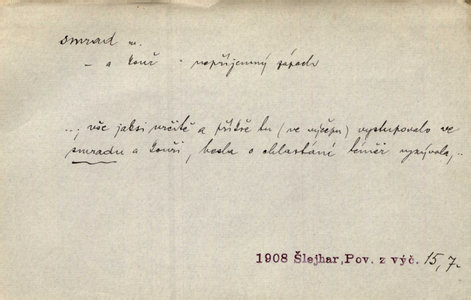 smrad m.
– a kouř - nepříjemný zápach
..., vše jaksi určitě a příkře tu (ve výčepu) vystupovalo ve
smradu a kouři, hesla o chlastání téměř vyzývala, ..
1908 Šlejhar, Pov. z výč. 15,7.